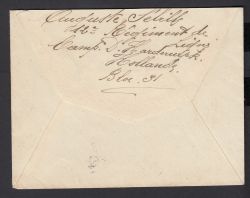 Auguste Schilt
4e Régiment de
Ligne
Camp. I. Harderwijk
Hollande
Bloc 31